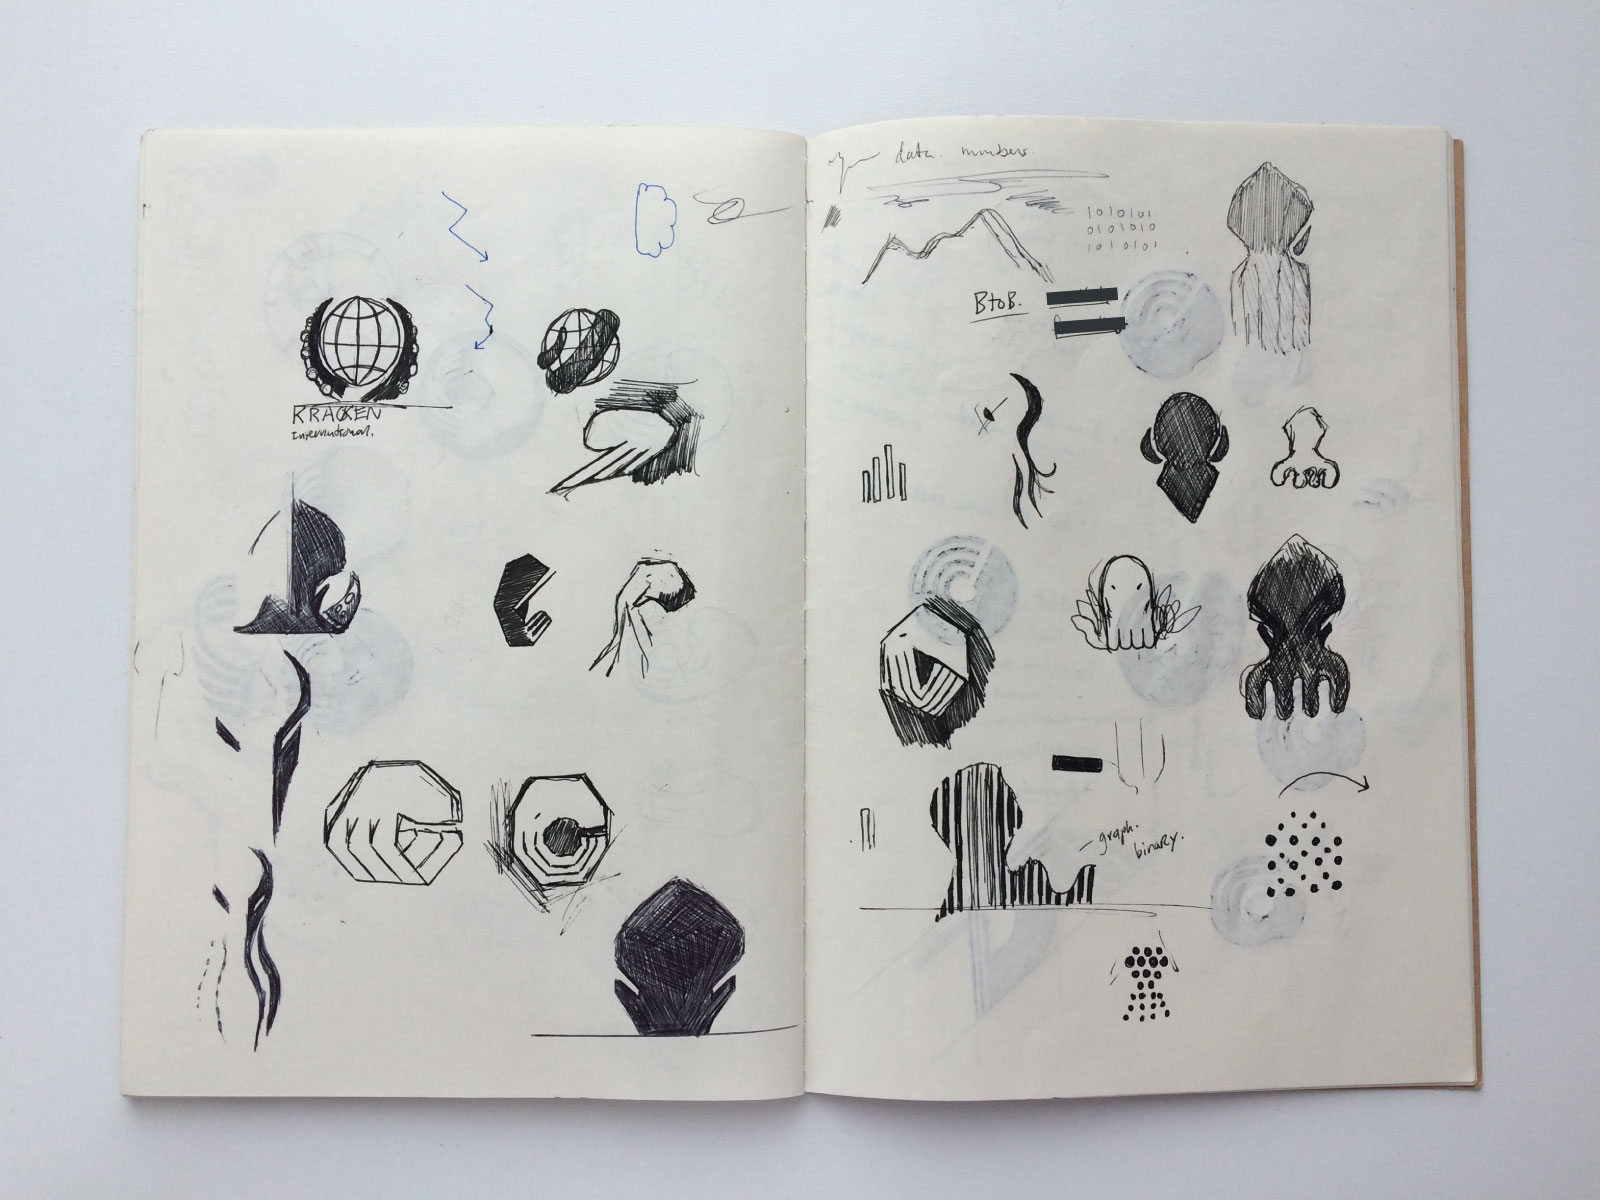 KRACKEN
International.
data. numbers.
1010101
0101010
1010101
BtoB.
- graph.
binary.